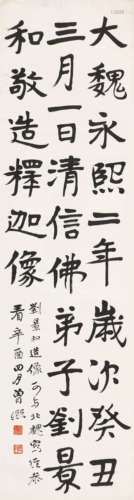 大魏永熙二年歲次癸丑
三月一日清信佛弟子劉景
和敬造釋迦像
劉景和造像可与北魏寫經參
看辛酉四月曾熙